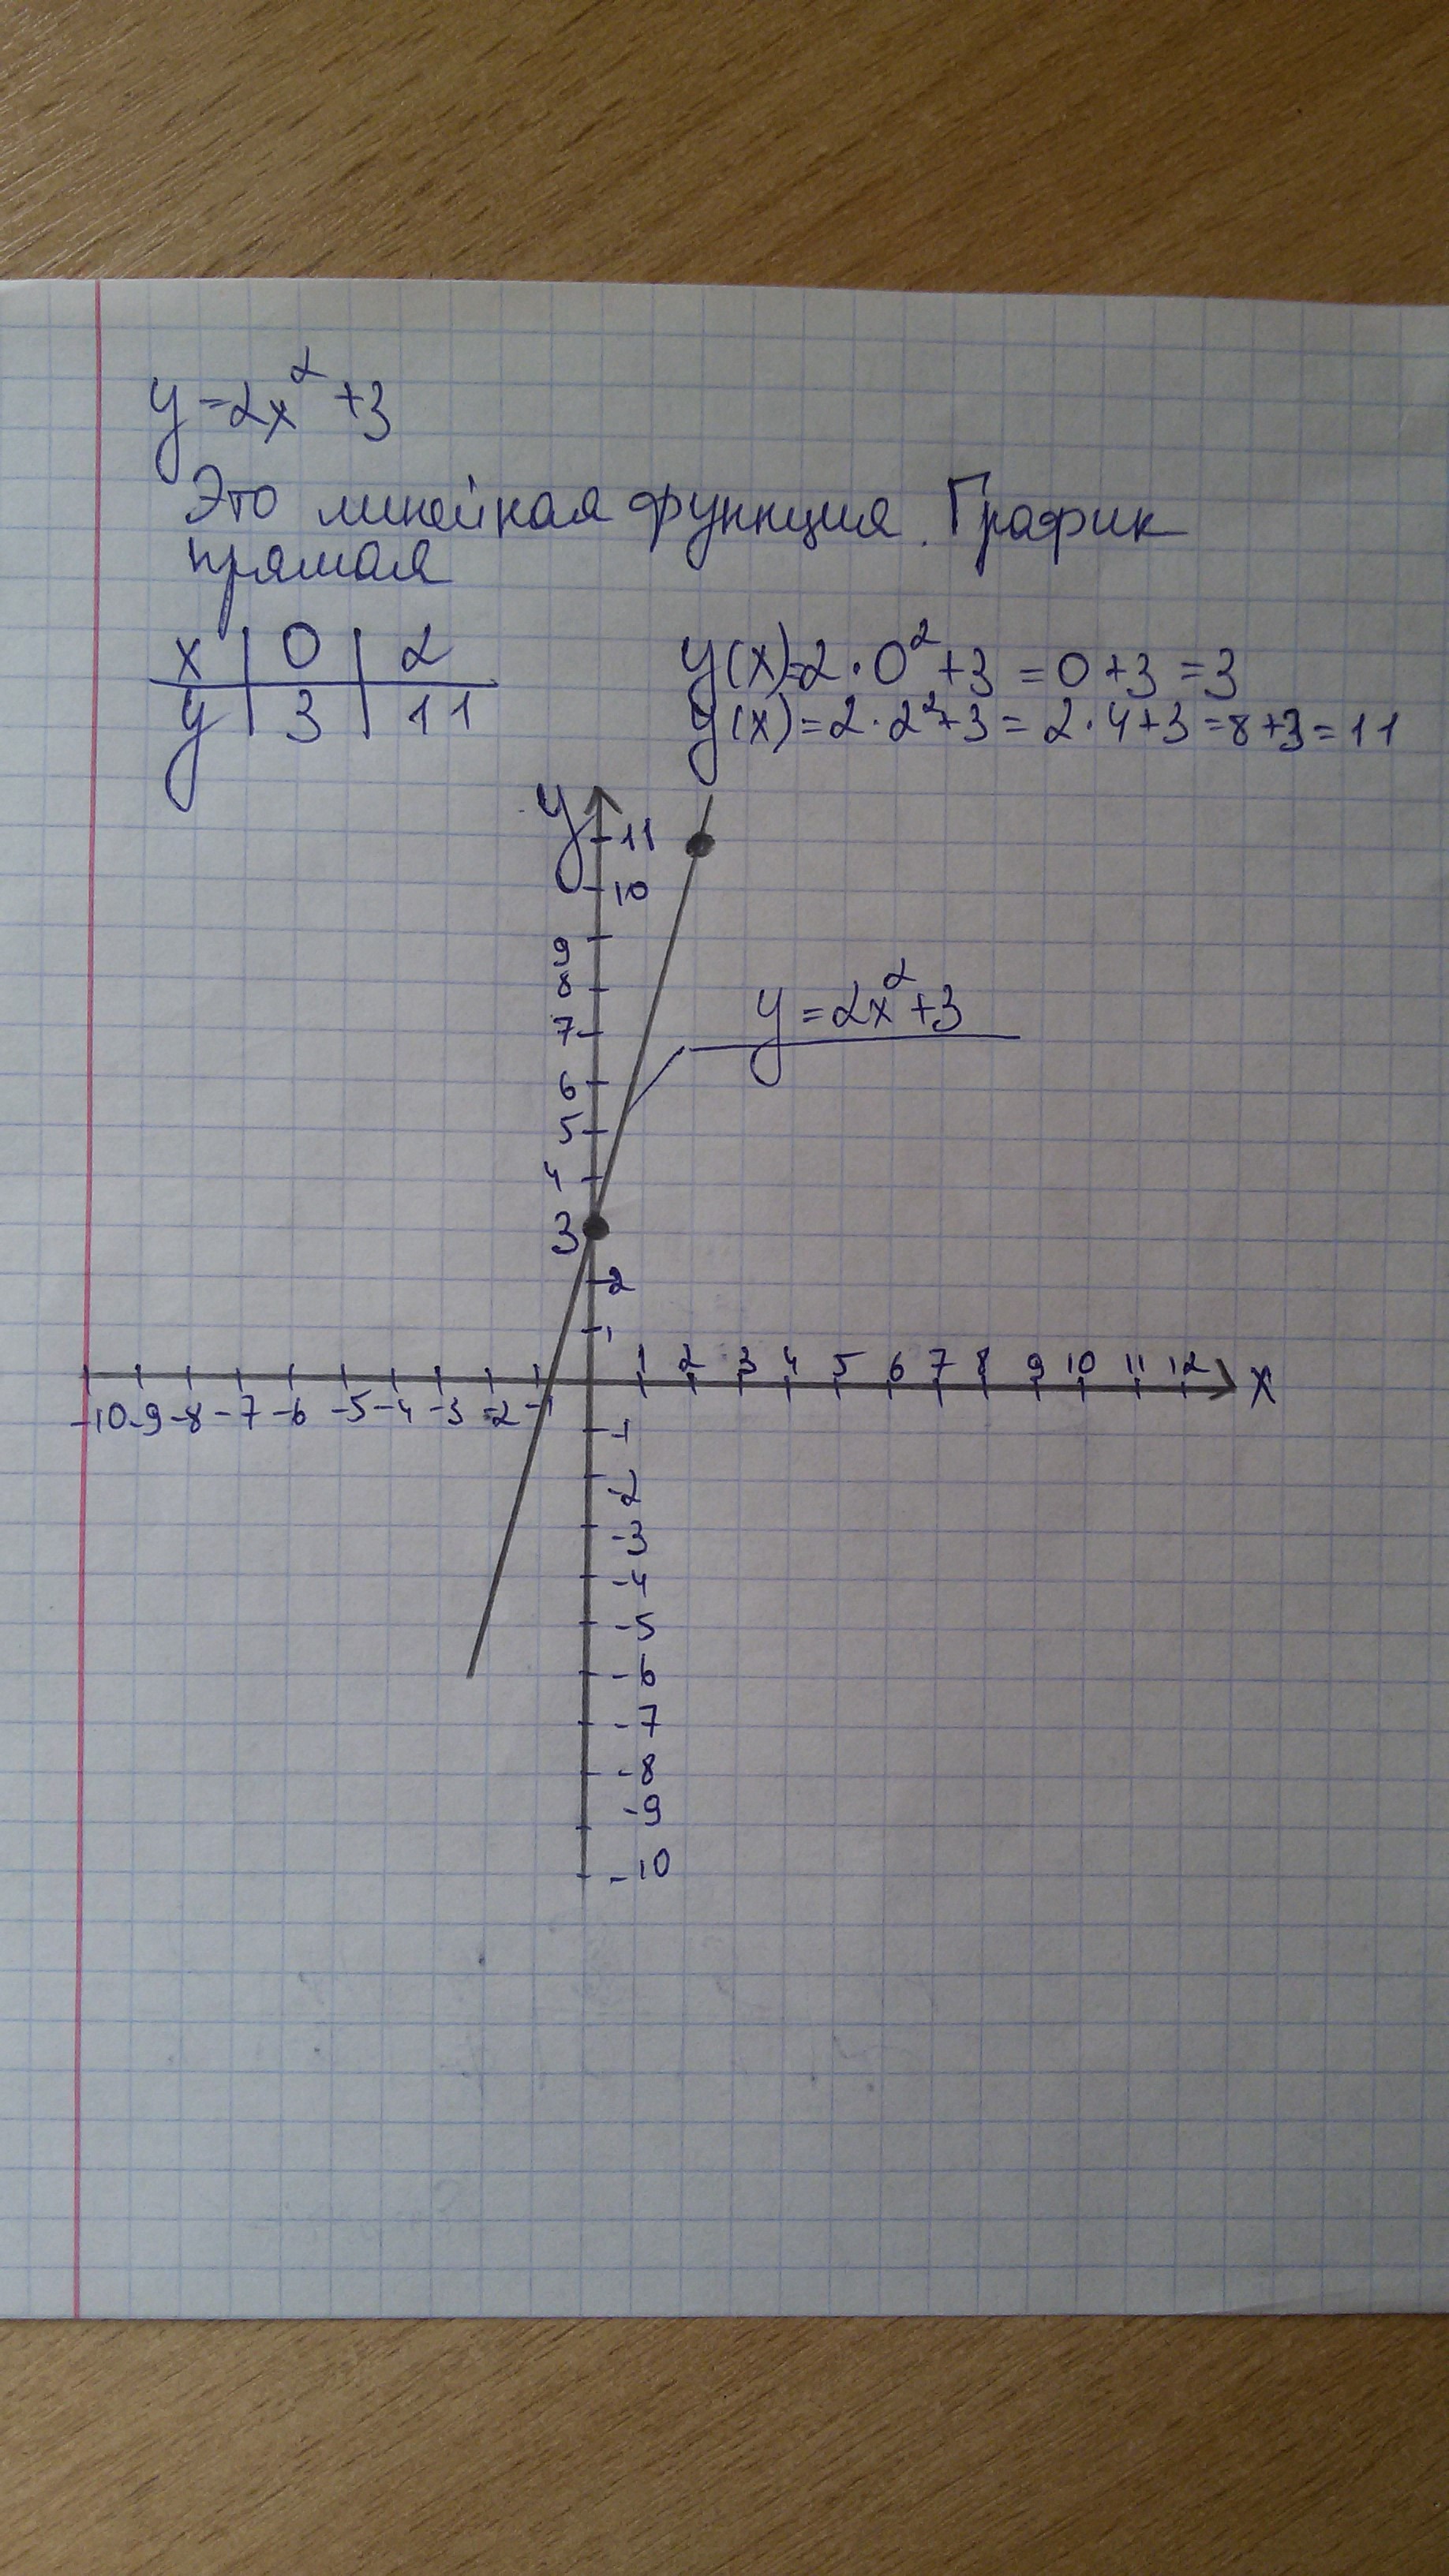 y=2x²+3
Это линейная функция. График
прямая
x | 0 | 2
y | 3 | 11
y(x)=2·0²+3=0+3=3
y(x)=2·2²+3=2·4+3=8+3=11
y
11
10
9
8
7
y=2x²+3
6
5
4
3
2
1
1 2 3 4 5 6 7 8 9 10 11 12 x
-10 -9 -8 -7 -6 -5 -4 -3 -2 -1
-1
-2
-3
-4
-5
-6
-7
-8
-9
-10